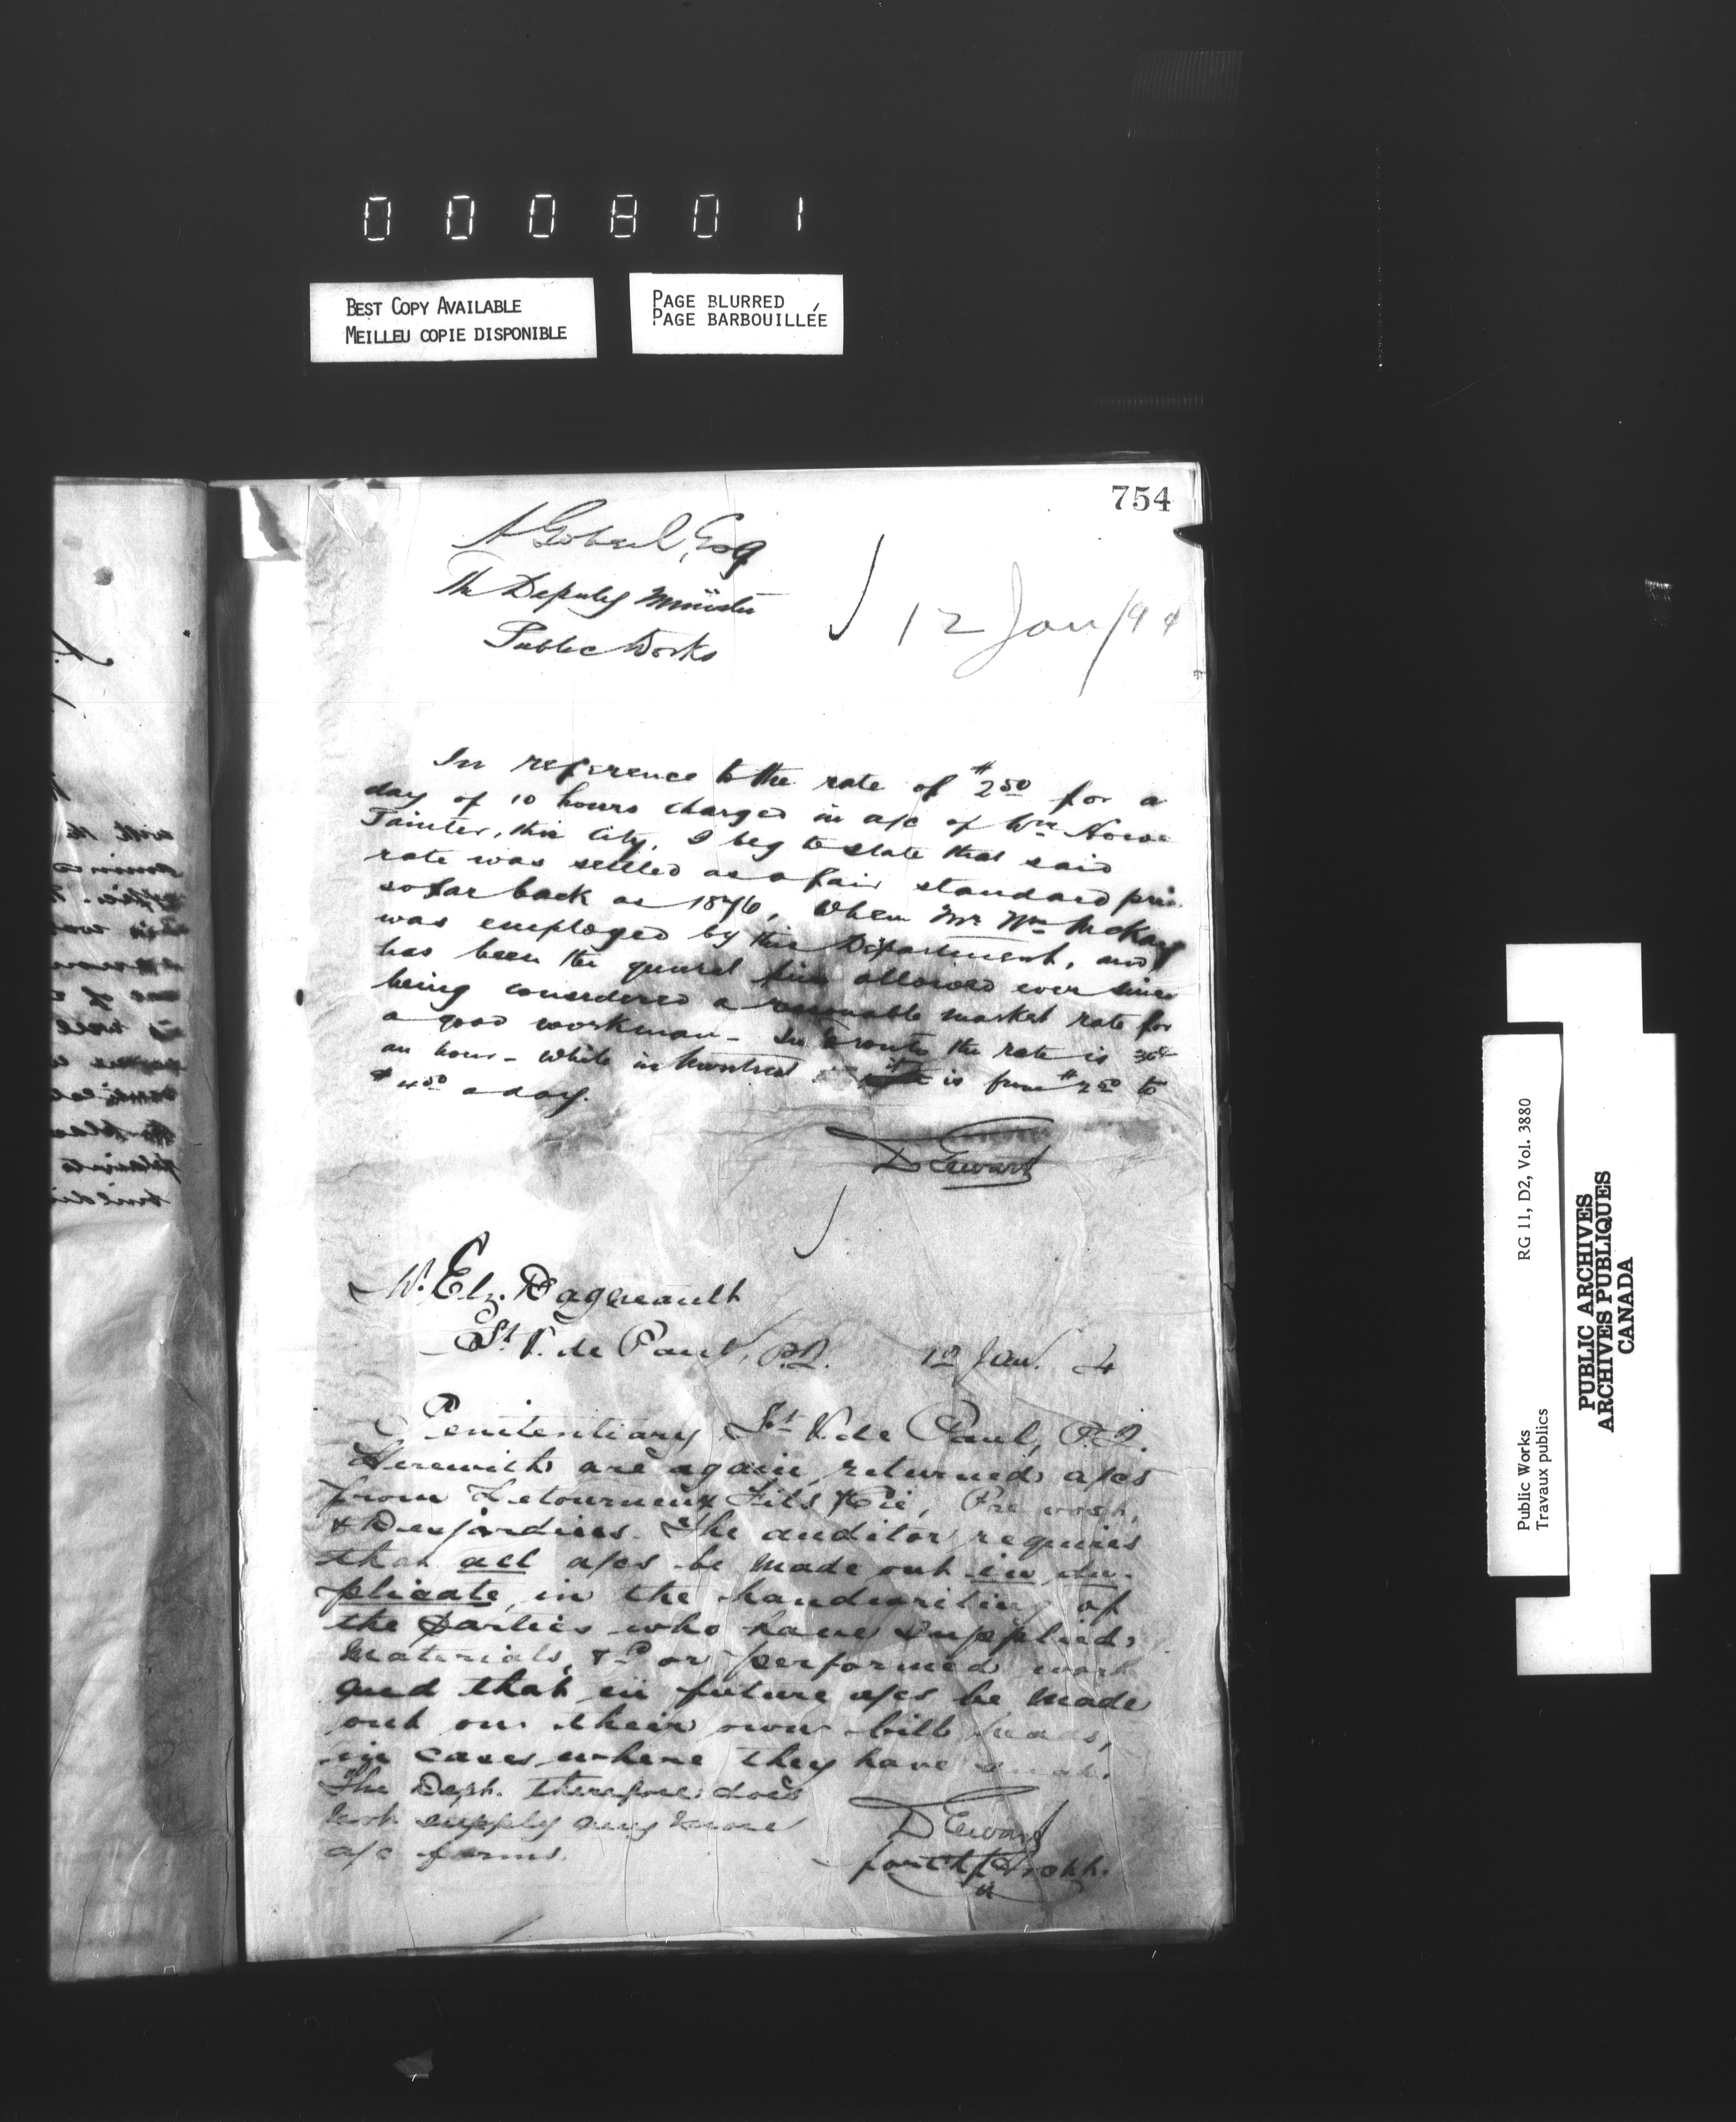 000801
BEST COPY AVAILABLE
MEILLEU COPIE DISPONIBLE
PAGE BLURRED
PAGE BARBOUILLÉE
754
A Gobeil, Esq
The Deputy Minister
Public Works
12 Jan/94
In reference to the rate of $2.50 for a
day of 10 hours charged in a/c of Wm Howe
Painter, this City, I beg to state that said
rate was settled as a fair standard pri
so far back as 1876, when Mr Wm McKay
was employed by this Department, and
has been the general allowed ever since
being considered a reasonable market rate for
a good workman - In Toronto the rate is 30¢
an hour - while in Montreal it is from $2.50 to
$4.50 a day.
D Ewart
M. Elz. Dageneault
St V. de Paul, P.Q. 12 Jan. 4
Penitentiary St V. de Paul, P.Q.
Herewith are again returned a/cs
from Letourneux Fils & Cie, Prevost,
& Desjardins. The auditor requires
that all a/cs be made out in du-
plicate, in the handwriting of
the parties who have supplied
materials, &c or performed work
and that in future a/cs be made
out on their own bill heads,
in cases where they have such.
The Dept. therefore does
not supply any more
a/c forms.
D Ewart
for Chf Archt.
Public Works
Travaux publics
RG 11, D2, Vol. 3880
PUBLIC ARCHIVES
ARCHIVES PUBLIQUES
CANADA